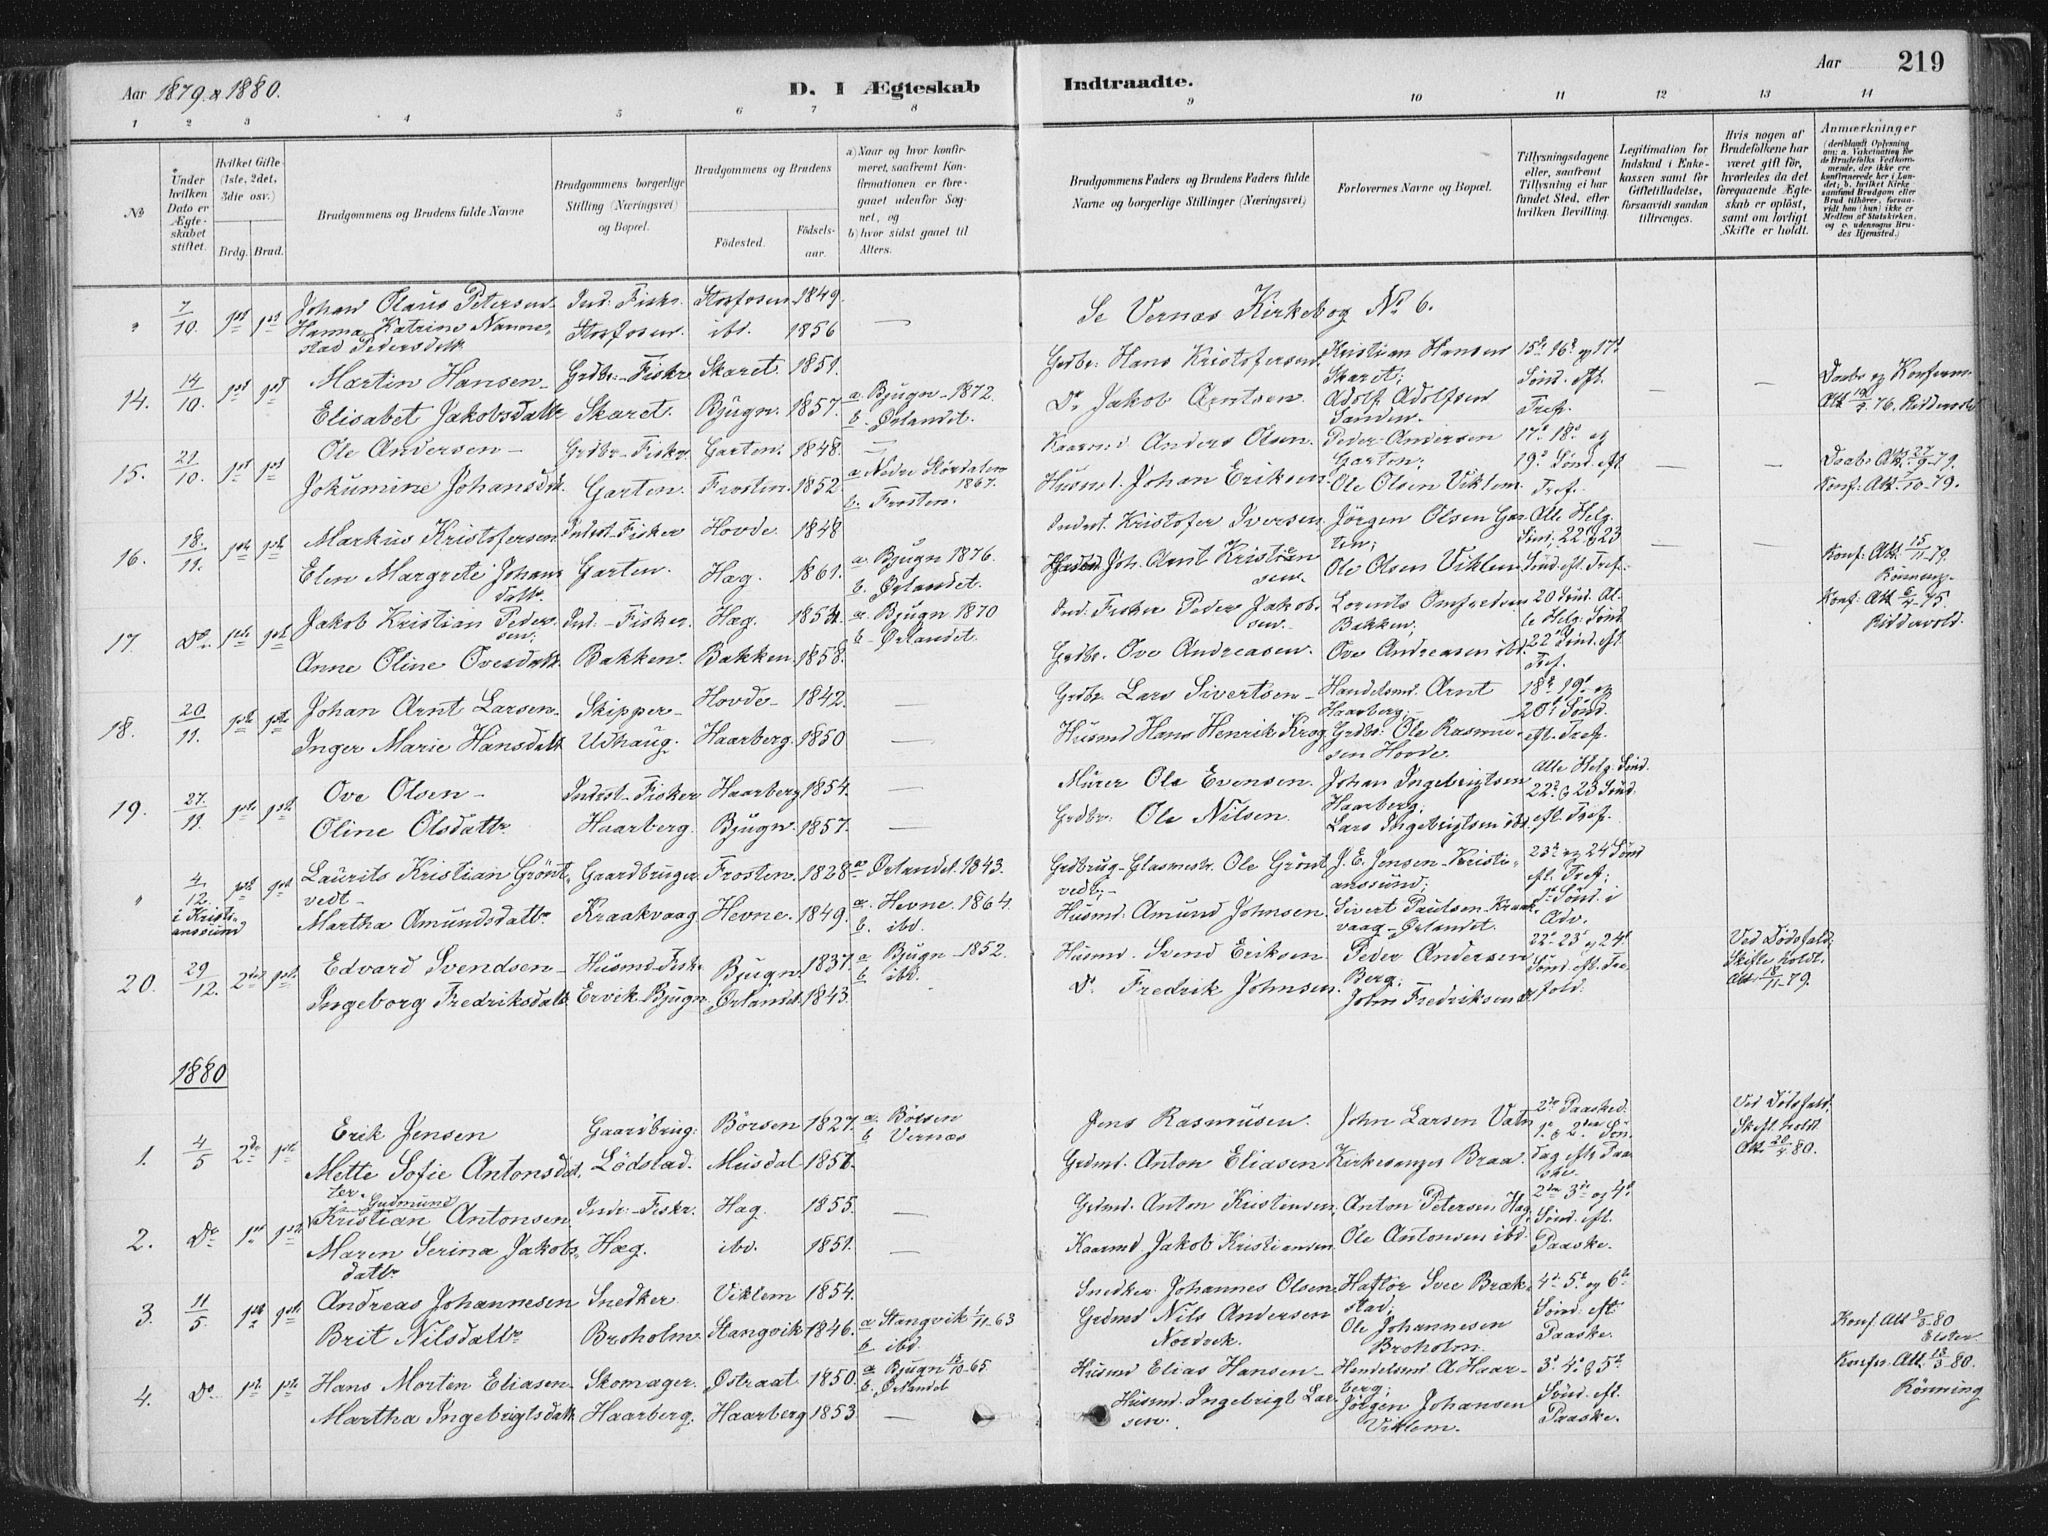 Aar 1879 & 1880.
D. I Ægteskab Indtraadte.
Aar
219
1 2 3 4 5 6 7 8 9 10 11 12 13 14
No
Under hvilken Dato er Ægteskabet stiftet.
Hvilket Gifte (1ste, 2det, 3die osv.)
Brdg. Brud.
Brudgommens og Brudens fulde Navne
Brudgommens borgerlige Stilling (Næringsvei) og Bopæl.
Brudgommens og Brudens
Fødested.
Fødsels-aar.
a) Naar og hvor konfirmeret, saafremt Konfirmationen er foregaaet udenfor Sognet, og
b) hvor sidst gaaet til Alters.
Brudgommens Faders og Brudens Faders fulde Navne og borgerlige Stillinger (Næringsvei)
Forlovernes Navne og Bopæl.
Tillysningsdagene eller, saafremt Tillysning ei har fundet Sted, efter hvilken Bevilling.
Legitimation for Indskud i Enkekassen samt for Giftetilladelse, forsaavidt saadan tiltrenges.
Hvis nogen af Brudefolkene har været gift før, hvorledes da det foregaaende Ægteskab er opløst, samt om lovligt Skifte er holdt.
Anmærkninger
(deriblandt Oplysning om: a. Vakcination for de Brudefolks Vedkommende, der ikke ere konfirmerede her i Landet; b. hvilket Kirkesamfund Brudgom eller Brud tilhører, forsaavidt han (hun) ikke er Medlem af Statskirken, og c. udensogns Brudes Hjemsted.)
" 7/10. 1ste 1ste Johan Olaus Petersen Ind. Fiskr. Storfosen 1849. — Se Vernæs Kirkebog No 6.
Hanna Katrine Nannestad Pedersdatt. Storfosen. ibd. 1856
14. 14/10. 1ste 1ste Martin Hansen Grdbr.-Fiskr Skaret. 1851. Grdbr. Hans Kristofersen. Kristian Hansen Skaret; 15de 16de og 17de Sønd. eft. Tref. — —
Elisabet Jakobsdattr Skaret. Bjugn. 1857. a. Bjugn 1872. b. Ørlandet. Do Jakob Arntsen. Adolf Adolfsen Sanden. Daab og Konfirm. Att. 76. Riddervold
15. 21/10. 1ste 1ste Ole Andersen Grdbr-Fiskr. Garten. 1848. — Kaarmd Anders Olsen. Peder Andersen Garten; 17de 18de og 19de Sønd. eft. Tref. — — Daab: Att. 27/9-79.
Jokumine Johansdtr. Garten. Frosten. 1852 a. Nedre Stördalen 1867. b. Frosten. Husmd. Johan Eriksen Ole Olsen Viklem. Konf: Att. /10-79.
16. 18/11. 1ste 1ste Markus Kristofersen Indrst-Fisker Hovde. 1848 Indrst. Kristofer Iversen Jørgen Olsen Garten; Alle Helg. Sønd. 22 & 23 Sønd. eft. Tref. — —
Elen Margrete Johansdattr. Garten. Hæg. 1861. a. Bjugn 1876. b. Ørlandet. Joh. Arnt Kristiansen. Ole Olsen Viklem Konf: Att. 15/11-79. Rönning.
17. Do 1ste 1ste Jakob Kristian Pedersen. Ind.-Fisker. Hæg. 1854 a. Bjugn 1870 b. Ørlandet. Ind. Fisker Peder Jakobsen. Lorents Omfredsen Bakken; 20 Sønd. Alle Helg. Sønd. 22de Sønd. eft. Tref. Konf: Att 6/4-75. Riddervold.
Anne Oline Ovesdatt. Bakken. Bakken. 1858. Grdbr. Ove Andreasen. Ove Andreasen ibd.
18. 20/11. 1ste 1ste Johan Arnt Larsen Skipper Hovde 1842. — Grdbr. Lars Sivertsen Handelsmd. Arnt Haarberg; 18de 19de og 20de Sønd. eft. Tref.
Inger Marie Hansdatt. Udhaug. Haarberg. 1850 — Husmd Hans Henrik Krog Grdbr. Ole Rasmussen Hovde.
19. 27/11. 1ste 1ste Ove Olsen Indrst-Fisker Haarberg 1854. — Murer Ole Evensen. Johan Ingebrigtsen Haarberg; Alle Helg. Sønd. 22de & 23 Sønd. eft. Tref.
Oline Olsdattr Haarberg. Bjugn. 1857. — Grdbr. Ole Nilsen. Lars Ingebrigtsen ibd.
" 4/12. i Kristiansund 1ste 1ste Laurits Kristian Gröntvedt Gaardbruger Frosten. 1828 a. Ørlandet. 1843. Grdbrug-Glasmestr. Ole Gröntvedt; J. E. Jensen-Kristianssund; 23de og 24 Sønd. eft. Tref; 1ste Sønd. i Adv.
Martha Amundsdattr. Kraakvaag Hevne. 1849. a. Hevne. 1864. b. ibd. Husmd. Amund Johnsen. Sivert Paulsen-Kraakvaag-Ørlandet.
20. 29/12. 2det 1ste Edvard Svendsen Husmd-Fisk. Bjugn 1837. a. Bjugn 1852. b. ibd. Husmd. Svend Eriksen Peder Andersen Berg; 22de 23de og 24de Sønd. eft. Trefold. Ved Dödsfald. Skifte holdt. Att. 18/11-79.
Ingeborg Fredriksdatt. Ervik-Bjugn Ørlandet 1843. Do Fredrik Johnsen. John Fredriksen
1880
1. 4/5 2det 1ste Erik Jensen Gaardbrug: Börsen 1827. a. Börsen b. Vernæs Jens Rasmusen. John Larsen Vatn 2den Paasked. 1ste & 2den Söndag eft. Paaske. Ved Dödsfald. Skift. holdt. Att. 20/4 80.
Mette Sofie Antonsdatter. Lödstad. Musdal Grdmd. Anton Eliasen Kirkesanger Braa.
2. Do 1ste 1ste Gudmund Kristian Antonsen Indr.-Fiskr. Hæg. 1855. — Grdmd. Anton Kristensen, Anton Petersen Hæg; 2den 3de og 4de Sønd. eft. Paaske.
Maren Serina Jakobsdattr Hæg. ibd. 1851. — Kaarmd Jakob Kristiansen Ole Antonsen ibd.
3. 11/5. 1ste 1ste Andreas Johannesen Snedker Viklem 1854. Snedker Johannes Olsen Haftor Svee Brækstad; 4de 5te og 6te Sønd. eft. Paaske.
Brit Nilsdattr Broholm. Stangvik 1846. a Stangvik 1/11-63 b ibd. Grdmd Nils Andersen Nordvik. Ole Johannesen Broholm. Konf. Att 9/3-80 Elster.
4. Do 1ste 1ste Hans Morten Eliasen Skomager. Østraat 1850. a Bjugn 15/10-65 b. Ørlandet Husmd Elias Hansen Handelsmd A Haarberg; 3de 4de & 5te Sønd. eft. Paaske. Konfr. Att. 13/3-80. Rönning
Martha Ingebrigtsdatt. Haarberg. Haarberg 1853. — Husmd. Ingebrigt Larsen. Jörgen Johansen Viklem.